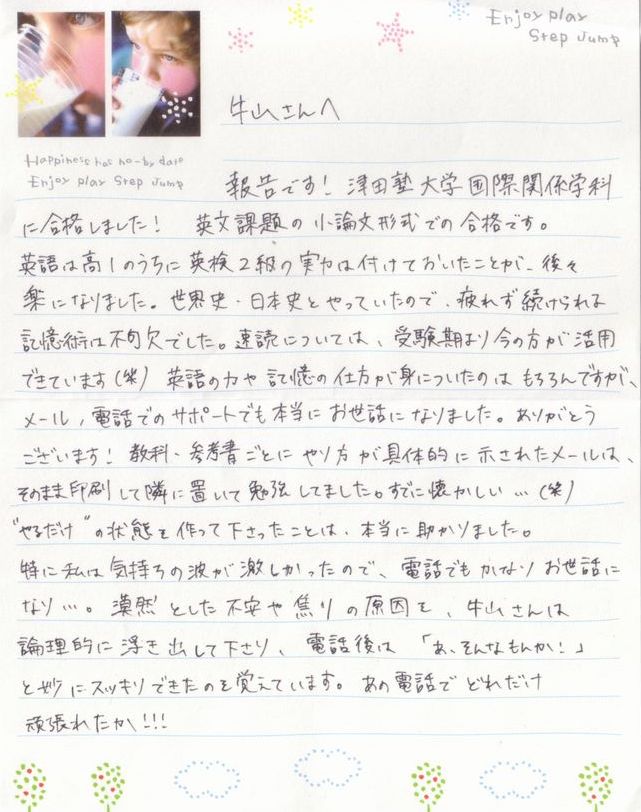 Enjoy play
Step Jump
牛山さんへ
Happiness has no-by date
Enjoy play Step Jump
報告です! 津田塾大学国際関係学科
に合格しました! 英文課題の小論文形式での合格です。
英語は高1のうちに英検2級の実力は付けておいたことが、後々
楽になりました。世界史・日本史とやっていたので、疲れず続けられる
記憶術は不可欠でした。速読については、受験期より今の方が活用
できています(笑) 英語の力や記憶の仕方が身についたのはもちろんですが、
メール、電話でのサポートでも本当にお世話になりました。ありがとう
ございます! 教科・参考書ごとにやり方が具体的に示されたメールは、
そのまま印刷して隣に置いて勉強してました。すでに懐かしい…(笑)
"やるだけ"の状態を作って下さったことは、本当に助かりました。
特に私は気持ちの波が激しかったので、電話でもかなりお世話に
なり…。漠然とした不安や焦りの原因を、牛山さんは
論理的に浮き出して下さり、電話後は 「あ、そんなもんか!」
と妙にスッキリできたのを覚えています。あの電話でどれだけ
頑張れたか!!!